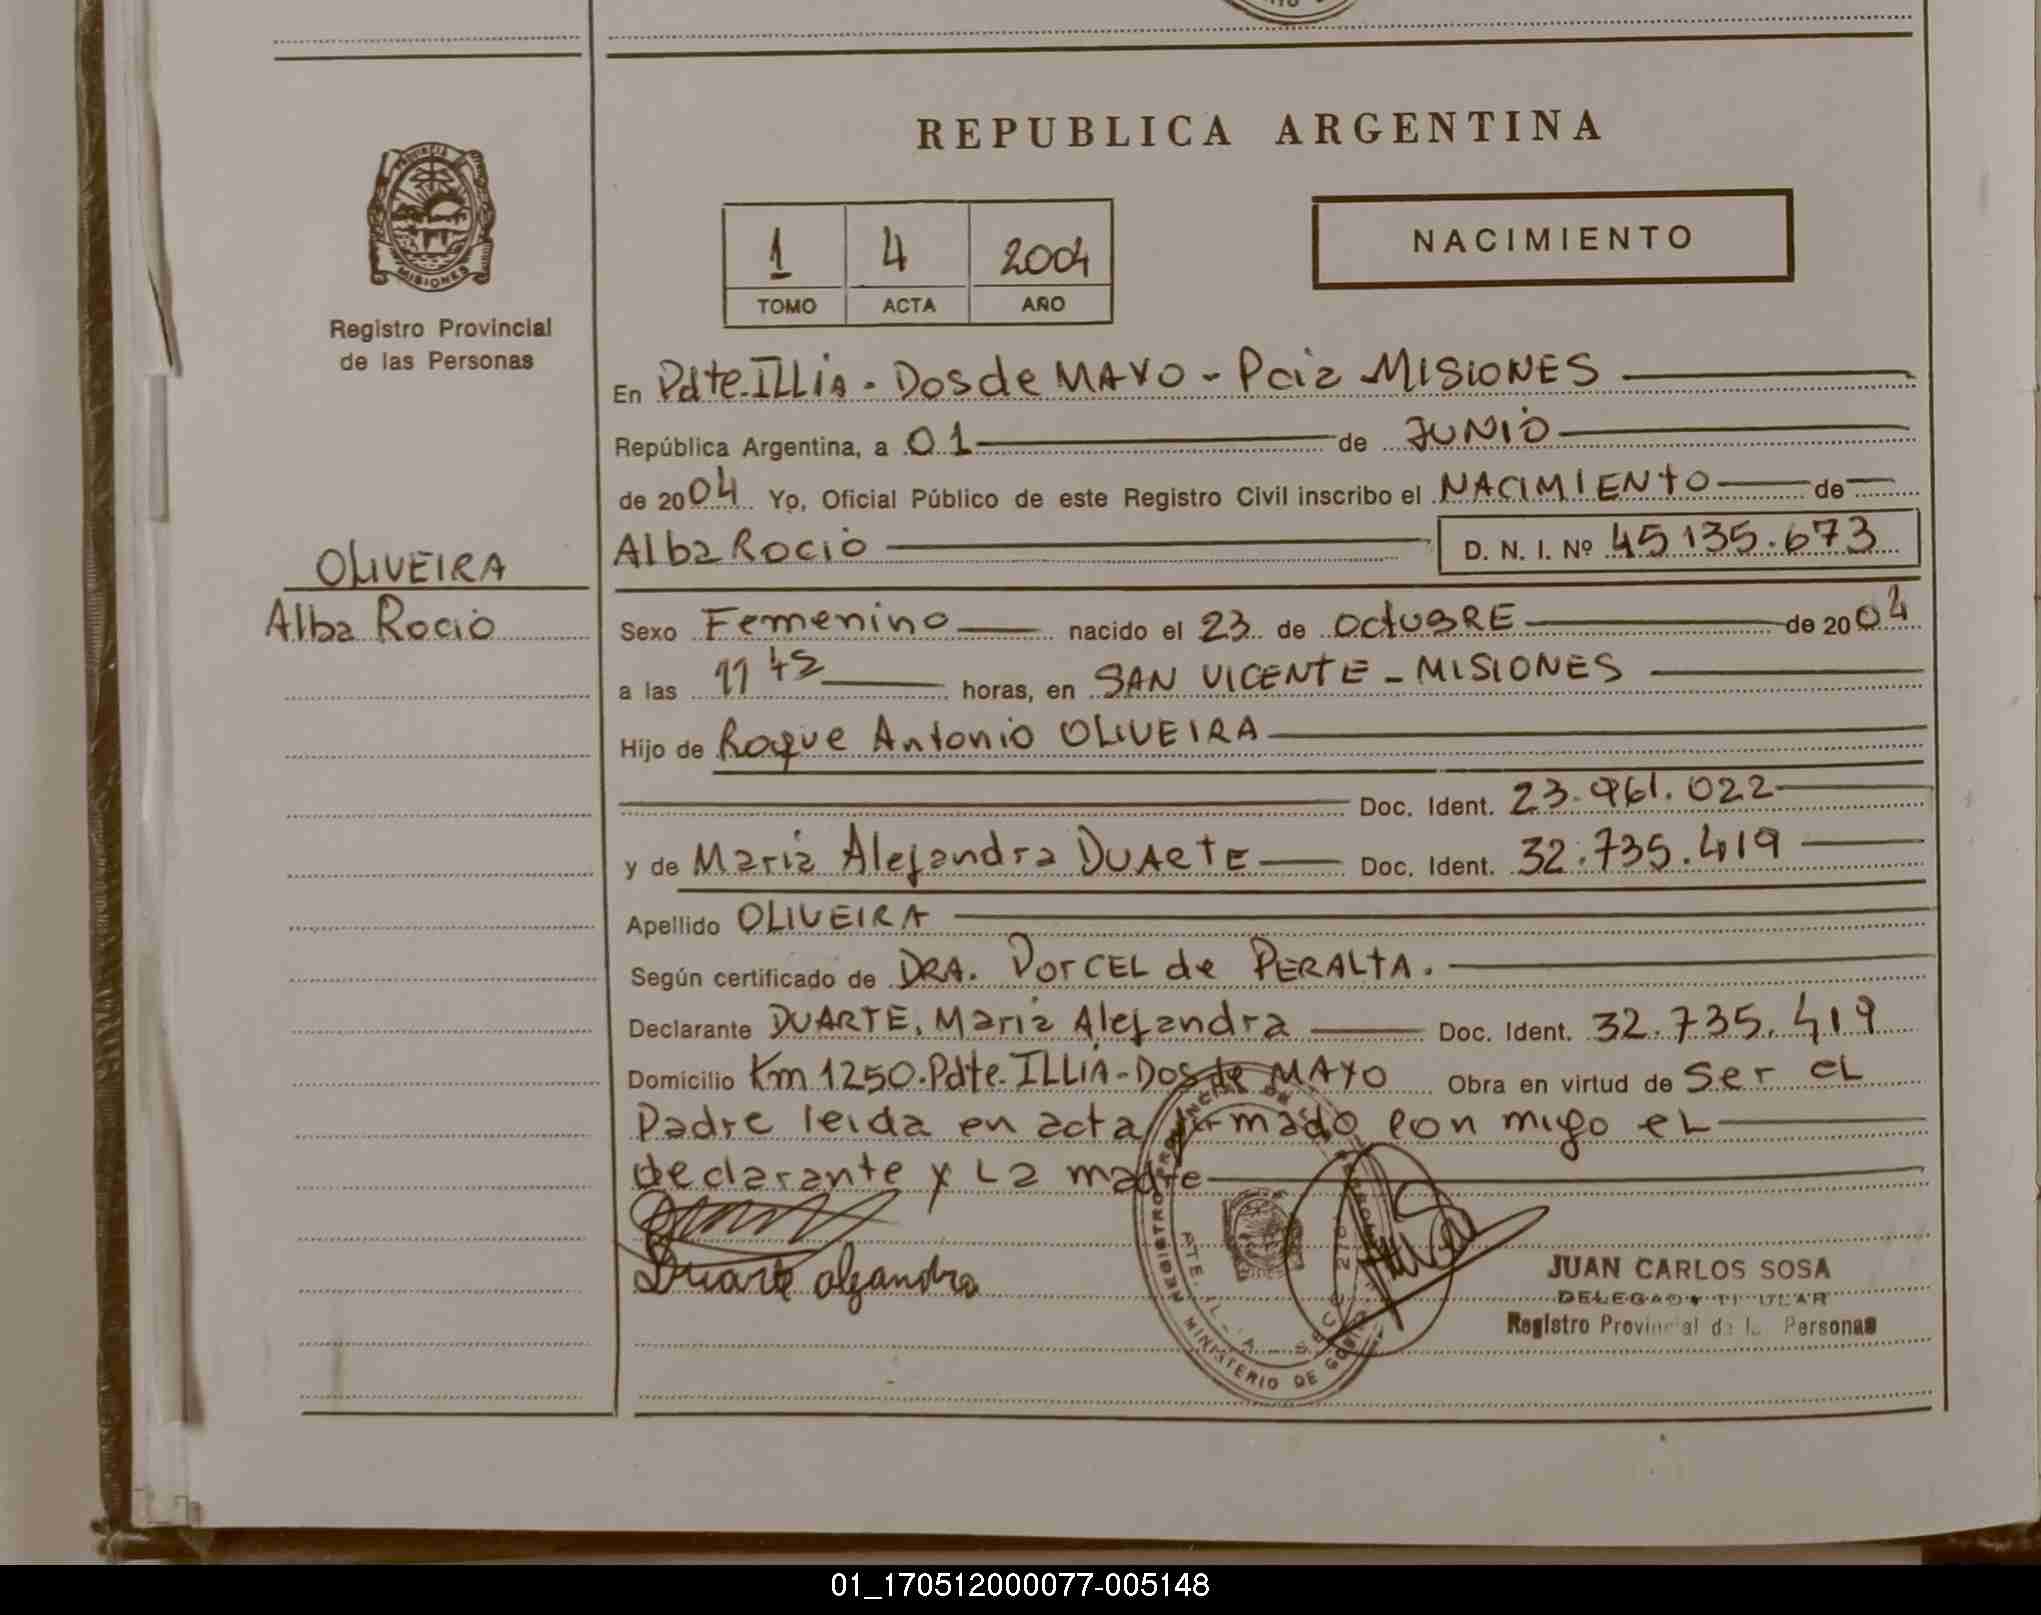 REPUBLICA ARGENTINA
NACIMIENTO
1 4 2004
TOMO ACTA AÑO
PROVINCIA DE
MISIONES
Registro Provincial
de las Personas
OLIVEIRA
Alba Rocio
En Pdte. ILLIA - Dos de MAYO - Pciz MISIONES
República Argentina, a 01 de JUNIO
de 2004 Yo, Oficial Público de este Registro Civil inscribo el NACIMIENTO de
Alba Rocio D. N. I. Nº 45135.673
Sexo Femenino nacido el 23 de OctUBRE de 2004
a las 11 45 horas, en SAN VICENTE - MISIONES
Hijo de Roque Antonio OLIVEIRA
Doc. Ident. 23.961.022
y de Maria Alejandra DUARTE Doc. Ident. 32.735.419
Apellido OLIVEIRA
Según certificado de DRA. DorCEL de PERALTA.
Declarante DUARTE, Maria Alejandra Doc. Ident. 32.735.419
Domicilio Km 1250. Pdte. ILLIA - Dos de MAYO Obra en virtud de Ser EL
Padre leida en acta firmado con migo eL
declarante y La madre
Duarte alejandra
REGISTRO PROVINCIAL DE
MINISTERIO DE
JUAN CARLOS SOSA
DELEGADO TITULAR
Registro Provincial de las Personas
01_170512000077-005148